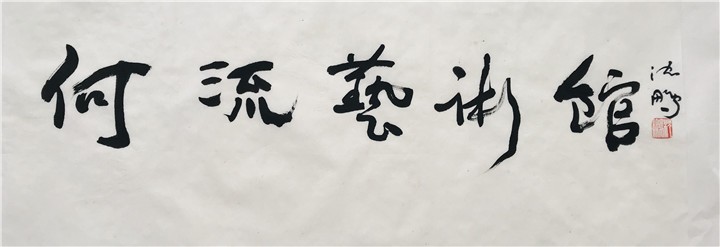 何流藝術館
沈鹏